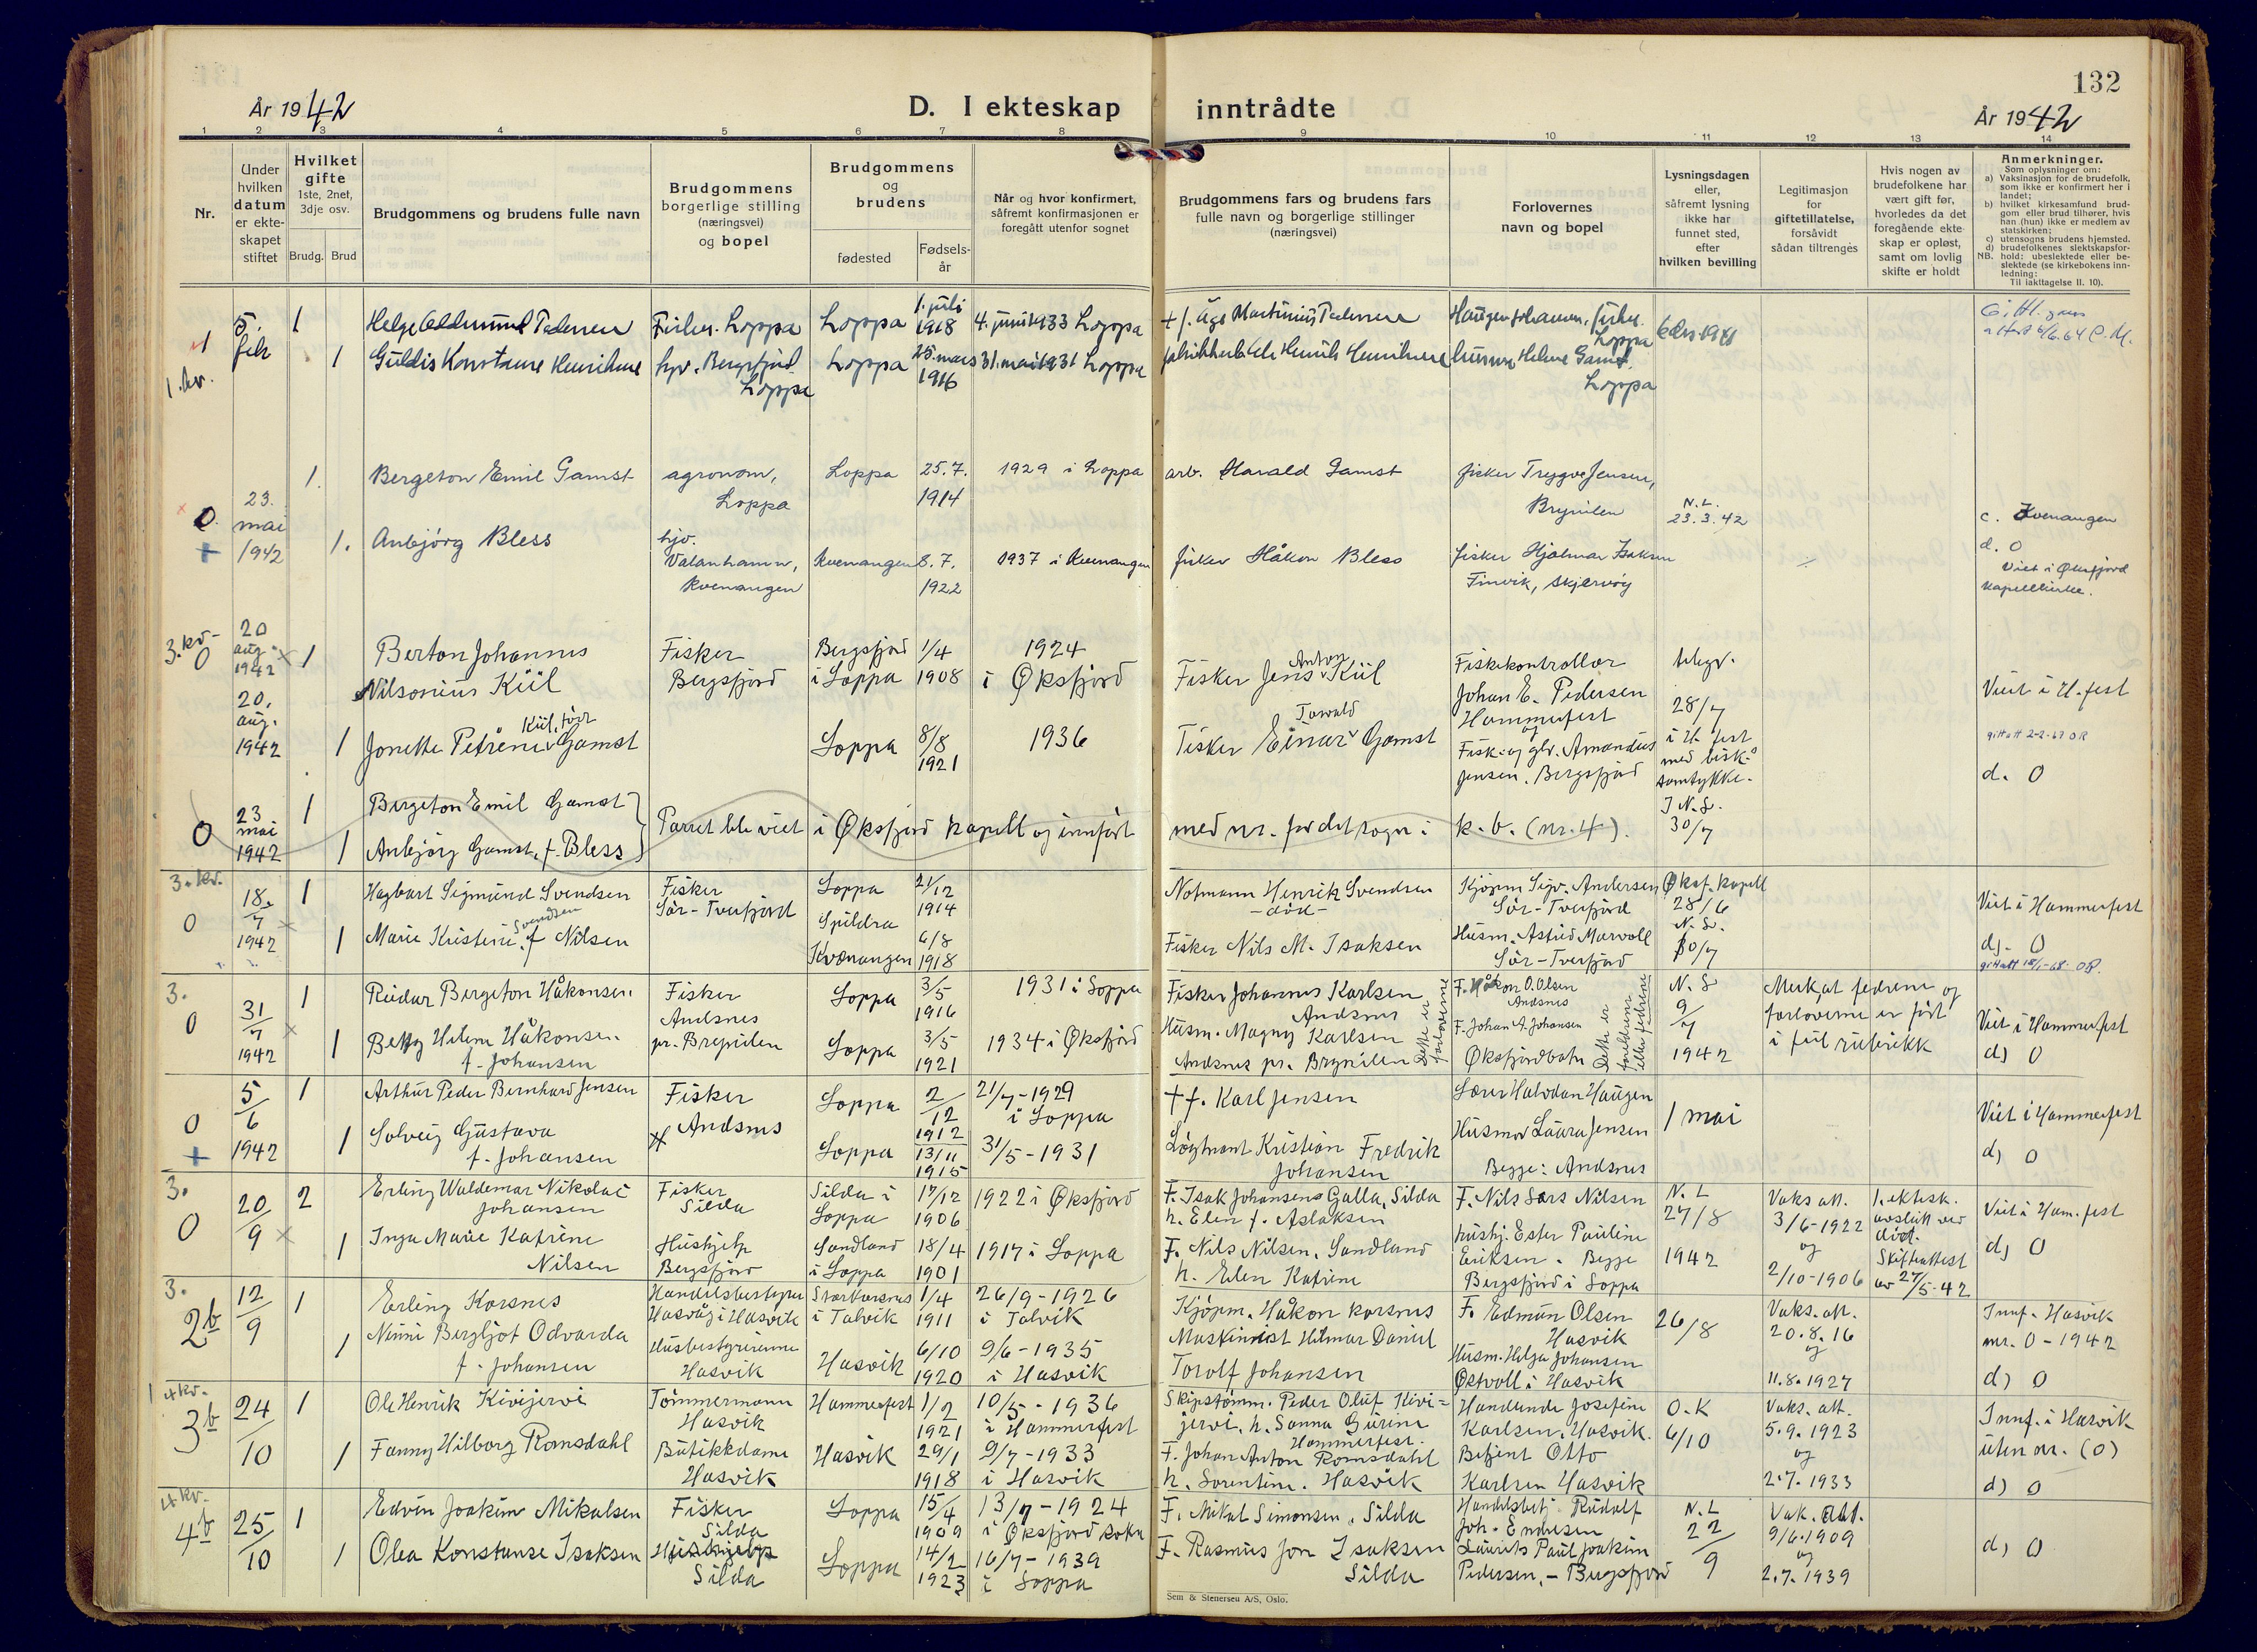 132
År 1942
D. I ekteskap inntrådte
År 1942
1 2 3 4 5 6 7 8 9 10 11 12 13 14
Nr.
Under hvilken datum er ekte-skapet stiftet
Hvilket gifte
1ste, 2net, 3dje osv.
Brudg. Brud
Brudgommens og brudens fulle navn
Brudgommens borgerlige stilling (næringsvei) og bopel
Brudgommens og brudens
fødested
Fødsels-år
Når og hvor konfirmert, såfremt konfirmasjonen er foregått utenfor sognet
Brudgommens fars og brudens fars fulle navn og borgerlige stillinger (næringsvei)
Forlovernes navn og bopel
Lysningsdagen eller, såfremt lysning ikke har funnet sted, efter hvilken bevilling
Legitimasjon for giftetillatelse, forsåvidt sådan tiltrenges
Hvis nogen av brudefolkene har vært gift før, hvorledes da det foregående ekte-skap er opløst, samt om lovlig skifte er holdt
Anmerkninger.
Som oplysninger om:
a) Vaksinasjon for de brudefolk, som ikke er konfirmert her i landet;
b) hvilket kirkesamfund brud-gom eller brud tilhører, hvis han (hun) ikke er medlem av statskirken;
c) utensogns brudens hjemsted.
d) brudefolkenes slektskapsfor-hold: ubeslektede eller be-slektede (se kirkebokens inn-ledning:
NB.
Til iakttagelse II. 10).
1 5. feb 1 Helge Pedersen Fisker. Loppa Loppa 1. juli 1918 4. juni 1933 Loppa
1.kv. 1 Guldis Konstanse Henriksen hjv. Bergsfjord Loppa Loppa 25. mars 1916 31. mai 1931 Loppa
+ f. Åge Martinius Pedersen
Henrik Henriksen
Haugen Johansen, fisker Loppa
Helene Gamst Loppa
0 23. mai 1942 1. Bergeton Emil Gamst agronom, Loppa Loppa 25.7. 1914 1929 i Loppa arb. Harald Gamst fisker Trygve Jensen, N.L. 23.3.42
1. Anbjörg Bless hjv. Valanhamn, Kvenangen Kvenangen 8.7. 1922 1937 i Kvenangen fisker Håkon Bless fisker Hjalmar Isaksen Finvik, Skjervöy
c. Kvenangen
d. 0
Viet i Øksfjord kapellkirke.
3.kv- 0 20 aug. 1942 1 Berton Johannes Nilsonius Kiil Fisker Bergsfjord Bergsfjord i Loppa 1/4 1908 1924 i Øksfjord Fisker Jens Anton Kiil
Fiskekontrollør Johan E. Pedersen Hammerfest
og Fisk- og gbr. Amandus Jensen. Bergsfjord
telegr. 28/7 i H.fest med bisk. samtykke.
I N.L. 30/7
Viet i H.fest
20. aug. 1942 1 Jonette Petrine Kiil, född Gamst Loppa 8/8 1921 1936 Fisker Einar Torvald Gamst
gift att 2-2-67 OR
d. 0
0 23 mai 1942 1 Bergeton Emil Gamst
1 Anbjörg Gamst, f. Bless
Parret ble viet i Øksfjord kapell og innført med nr. for det sogn i k.b. (nr. 4).
3.kv. 0 18. 7 1942 1 Hagbart Sigmund Svendsen Fisker Sör-Tverfjord Loppa 21/12 1914
Notmann Henrik Svendsen -död-
Kjöpm Sigv. Andersen Sör-Tverfjord
Øksf. kapell 28/6 N.L. 30/7
Viet i Hammerfest
1 Marie Kristine Svendsen f Nilsen Spildra Kvænangen 6/8 1918 Fisker Nils M. Isaksen Husm. Astrid Marvoll Sör-Tverfjord
d). 0
3. 0 31/7 1942 1 Reidar Bergeton Håkonsen Fisker Andsnes pr. Brynilen Loppa 3/5 1916 1931 i Loppa
1 Betty Helene Håkonsen f. Johansen Loppa 3/5 1921 1934 i Øksfjord
Fisker Johannes Karlsen Andsnes
Husm. Magny Karlsen Andsnes pr. Brynilen
Dette er forloverne
F. Håkon O. Olsen Andsnes
F. Johan A. Johansen Øksfjordbotn
Dette er foreldrene eller fedrene
N.L 9/7 1942
Merk, at fedrene og forloverne er fört i feil rubrikk
Viet i Hammerfest
d) 0
0 5/6 1942 1 Arthur Peder Bernhard Jensen Fisker Andsnes Loppa 2/12 1912 21/7-1929 i Loppa + f. Karl Jensen Lærer Halvdan Haugen 1 mai
1 Solveig Gustava f. Johansen Loppa 13/11 1915 31/5-1931 Kristian Fredrik Johansen Husmor Laura Jensen
Begge: Andsnes
Viet i Hammerfest
d) 0
3. 0 20/9 2 Erling Waldemar Nikolai Johansen Fisker Silda Silda i Loppa 17/12 1906 1922 i Øksfjord
F. Isak Johansen Galla, Silda h. Elen f. Aslaksen
F. Nils Lars Nilsen
N.L 27/8 1942
Vaks att. 3/6-1922 og 2/10-1906
1. ektesk. avsluttet ved död. Skifteattest av 27/5-42
Viet i Ham.fest
d) 0
1 Inga Marie Katrine Nilsen Hushjelp Bergsfjord Sandland i Loppa 18/4 1901 1917 i Loppa
F. Nils Nilsen, Sandland h. Elen Katrine
hushj. Ester Pauline Eriksen. Begge Bergsfjord i Loppa
3. 2b 12/9 1 Erling Korsnes Handelsbestyrer Hasvåg i Hasvik Storkorsnes i Talvik 1/4 1911 26/9-1926 i Talvik
Kjöpm. Håkon Korsnes
F. Edmun Olsen Hasvik
26/8
Vaks. att. 20.8.16 og 11.8.1927
Innf. Hasvik nr. 0-1942
d) 0
1 Ninni Bergljot Odvarda f. Johansen Husbestyrerinne Hasvik Hasvik 6/10 1920 9/6-1935 i Hasvik
Maskinist Hilmar Daniel Torolf Johansen
Husm. Helga Johansen Østvoll i Hasvik
4kv. 3b 24/10 1 Ole Henrik Kivijervi Tömmermann Hasvik Hammerfest 1/2 1921 10/5-1936 i Hammerfest
Skipstömm. Peder Oluf Kivijervi, h. Sanna Hammerfest.
Josefine Karlsen, Hasvik.
O.K 6/10
Vaks. att. 5.9.1923 og 2.7.1933
Innf. i Hasvik uten nr. (0)
d) 0
1 Fanny Hilborg Romsdahl Butikkdame Hasvik Hasvik 29/1 1918 9/7-1933 i Hasvik
F. Johan Anton Romsdahl h. Sorentine. Hasvik
Betjent Otto Karlsen Hasvik
4kv. 4b 25/10 1 Edvin Joakim Mikalsen Fisker Silda Loppa 15/4 1909 13/7-1924 i Øksfjord sokn
F. Mikal Simonsen, Silda
Handelsbetj. Rudolf Joh. Endresen
N.L 22/9
Vak. Att. 9/6.1909 og 2.7.1939
d) 0
1 Olea Konstanse Isaksen Hushjelp Silda Loppa 14/2 1923 16/7-1939 i Loppa
F. Rasmus Jon Isaksen Silda
Laurits Paul Joakim Pedersen, - Bergsfjord
Sem & Stenersen A/S, Oslo.